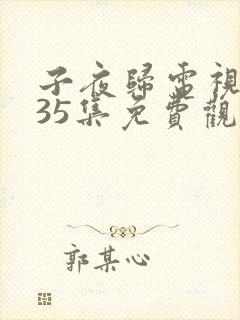 子夜歸電視
35集免費觀
郭某心